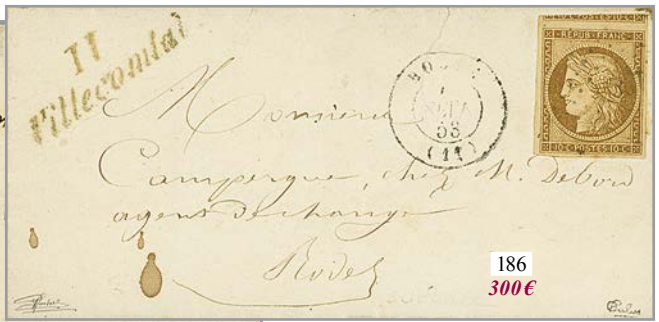 11
Villecomtal
10 C POSTES 10 C
REPUB FRANC
10 C POSTES 10 C
53
(11)
Monsieur
Campergue, chez M. Debord
agent de change
Rodez
186
300 €